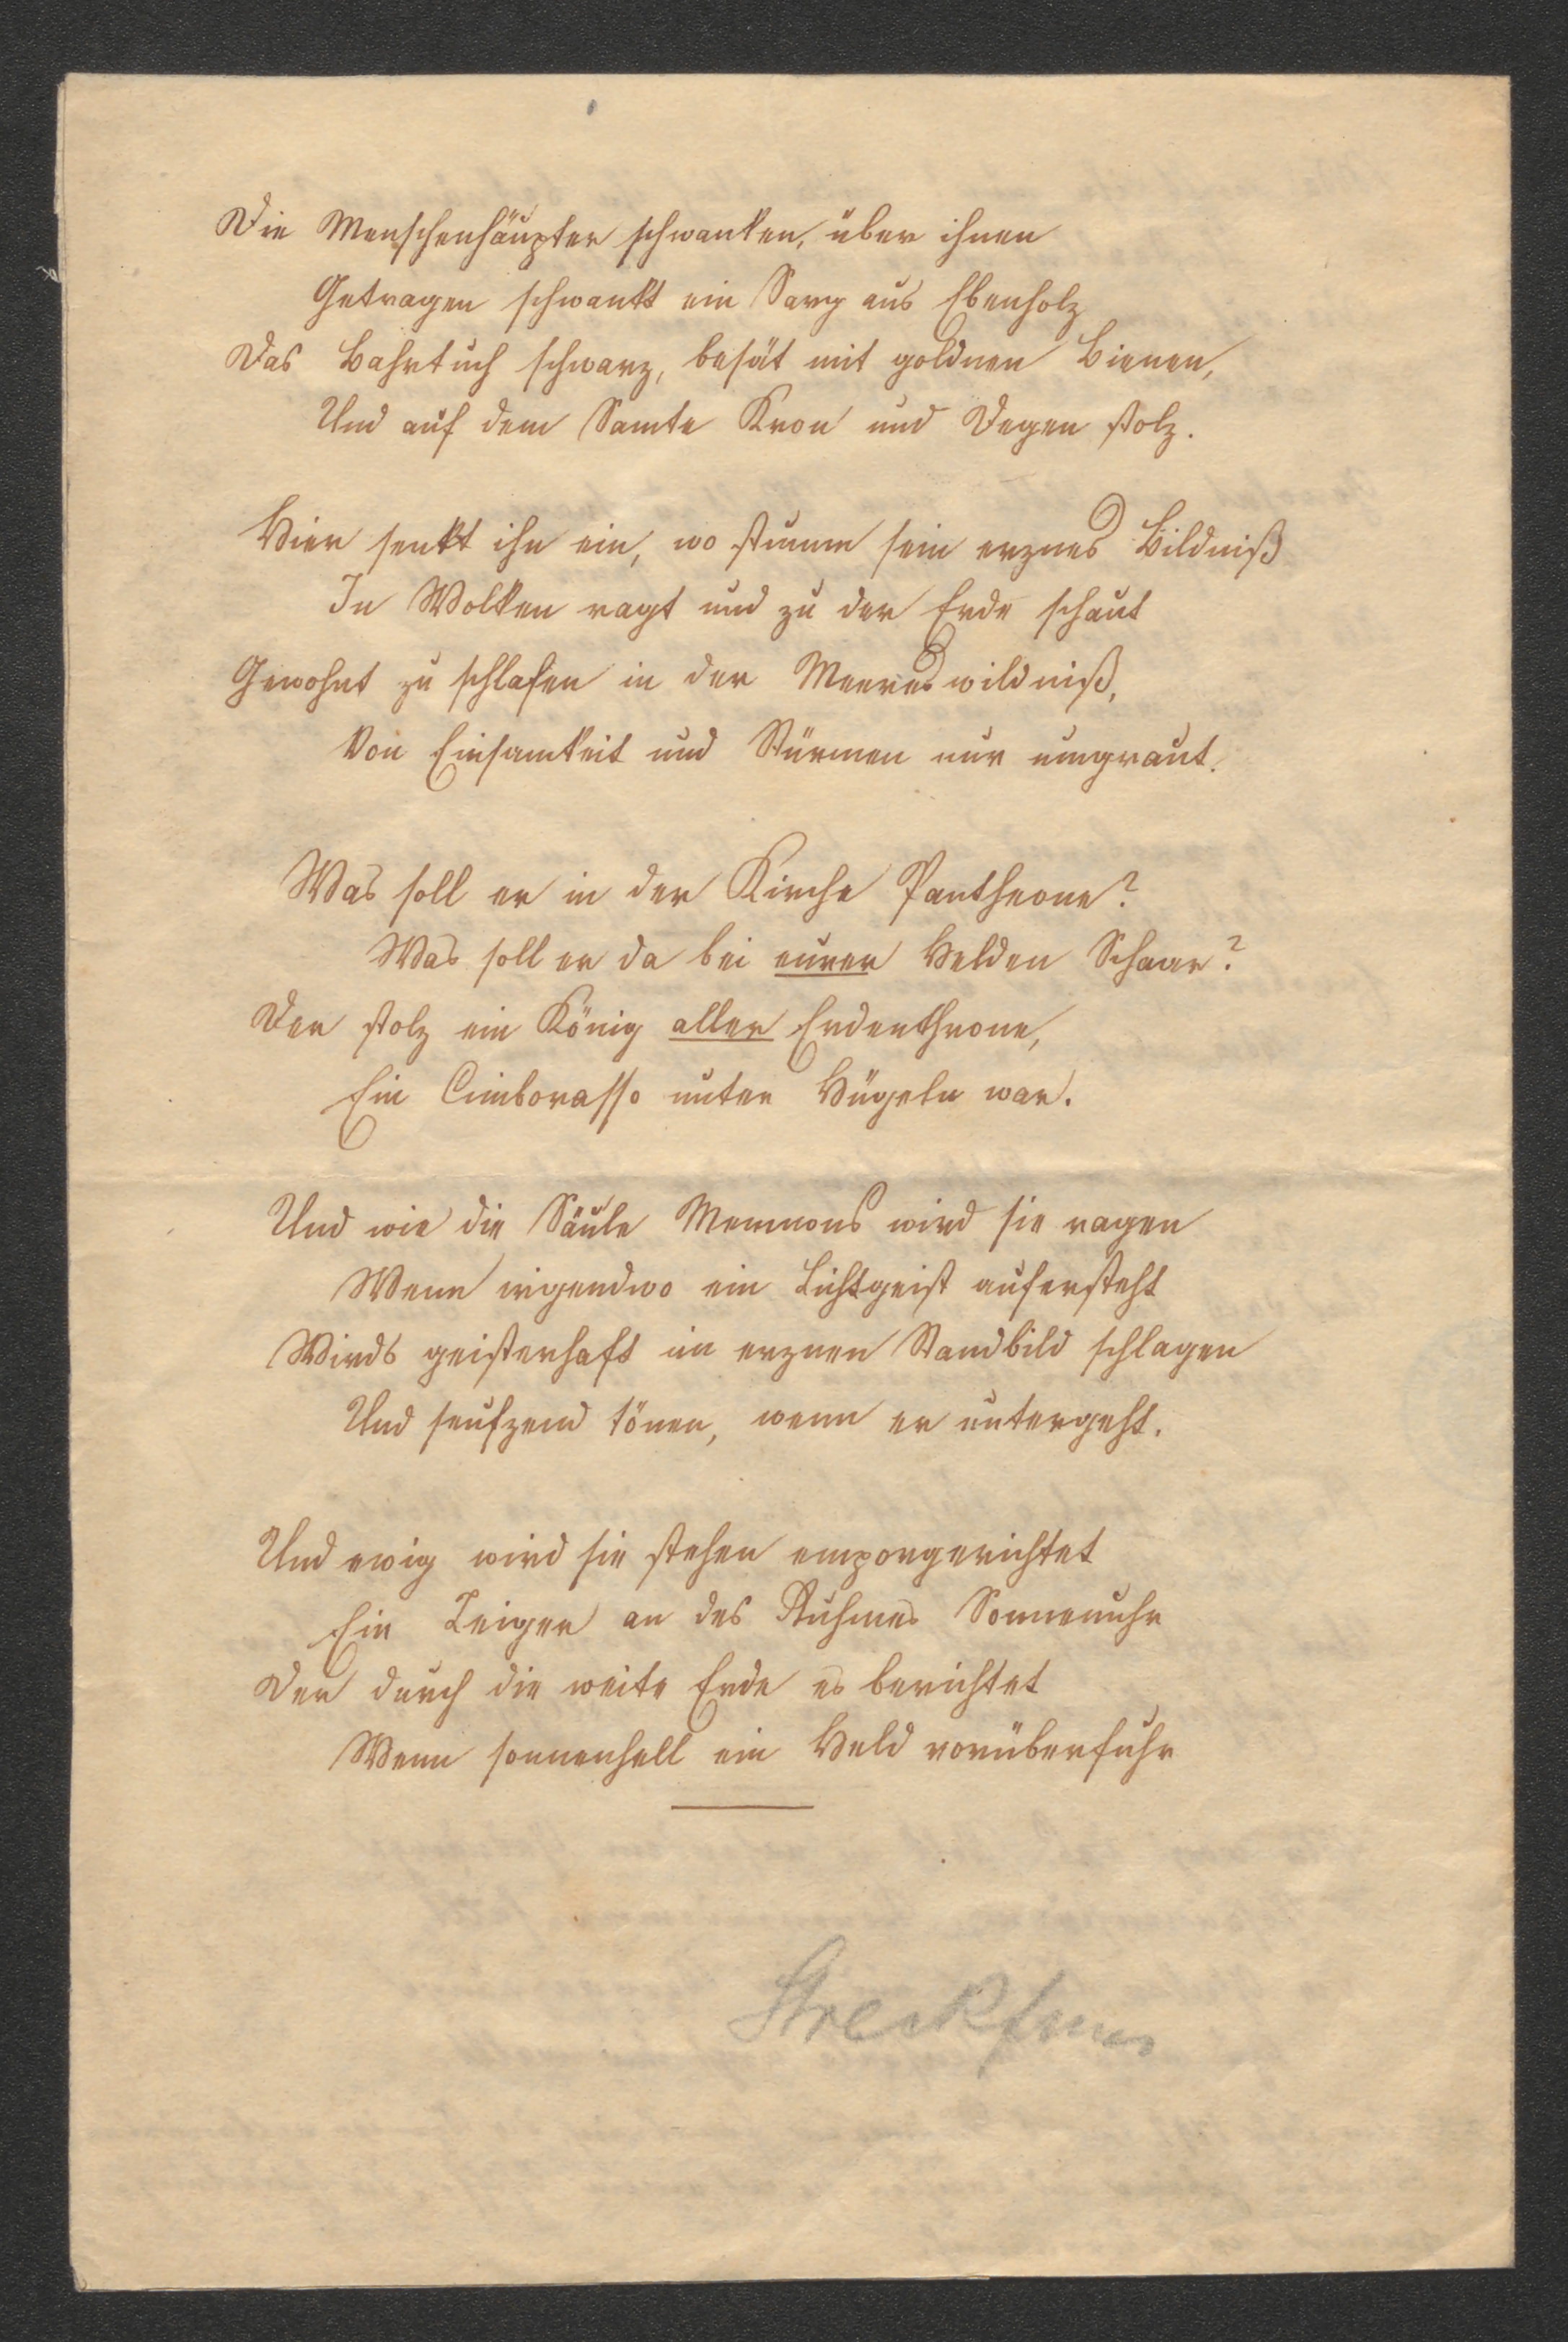 Die Menschenhäupter schwanken, über ihnen
Getragen schwankt ein Sarg aus Ebenholz
Das Bahrtuch schwarz, besät mit goldnen Bienen,
Und auf dem Samte Kron und Degen stolz.
Hier senkt ihn ein, wo stumm sein erznes Bildniß
In Wolken ragt und zu der Erde schaut
Gewohnt zu schlafen in der Meereswildniß,
Von Einsamkeit und Stürmen nur umgraut.
Was soll er in der Kirche Pantheone?
Was soll er da bei eurer Helden Schaar?
Der stolz ein König aller Erdenthrone,
Ein Cimborasso unter Hügeln war.
Und wie die Säule Memnons wird sie ragen
Wenn irgendwo ein Lichtgeist aufersteht
Wirds geisterhaft im erznen Standbild schlagen
Und seufzend tönen, wenn er untergeht.
Und ewig wird sie stehen emporgerichtet
Ein Zeiger an des Ruhmes Sonnenuhr
Der durch die weite Erde es berichtet
Wenn sonnenhell ein Held vorüberfuhr
Streckfuss